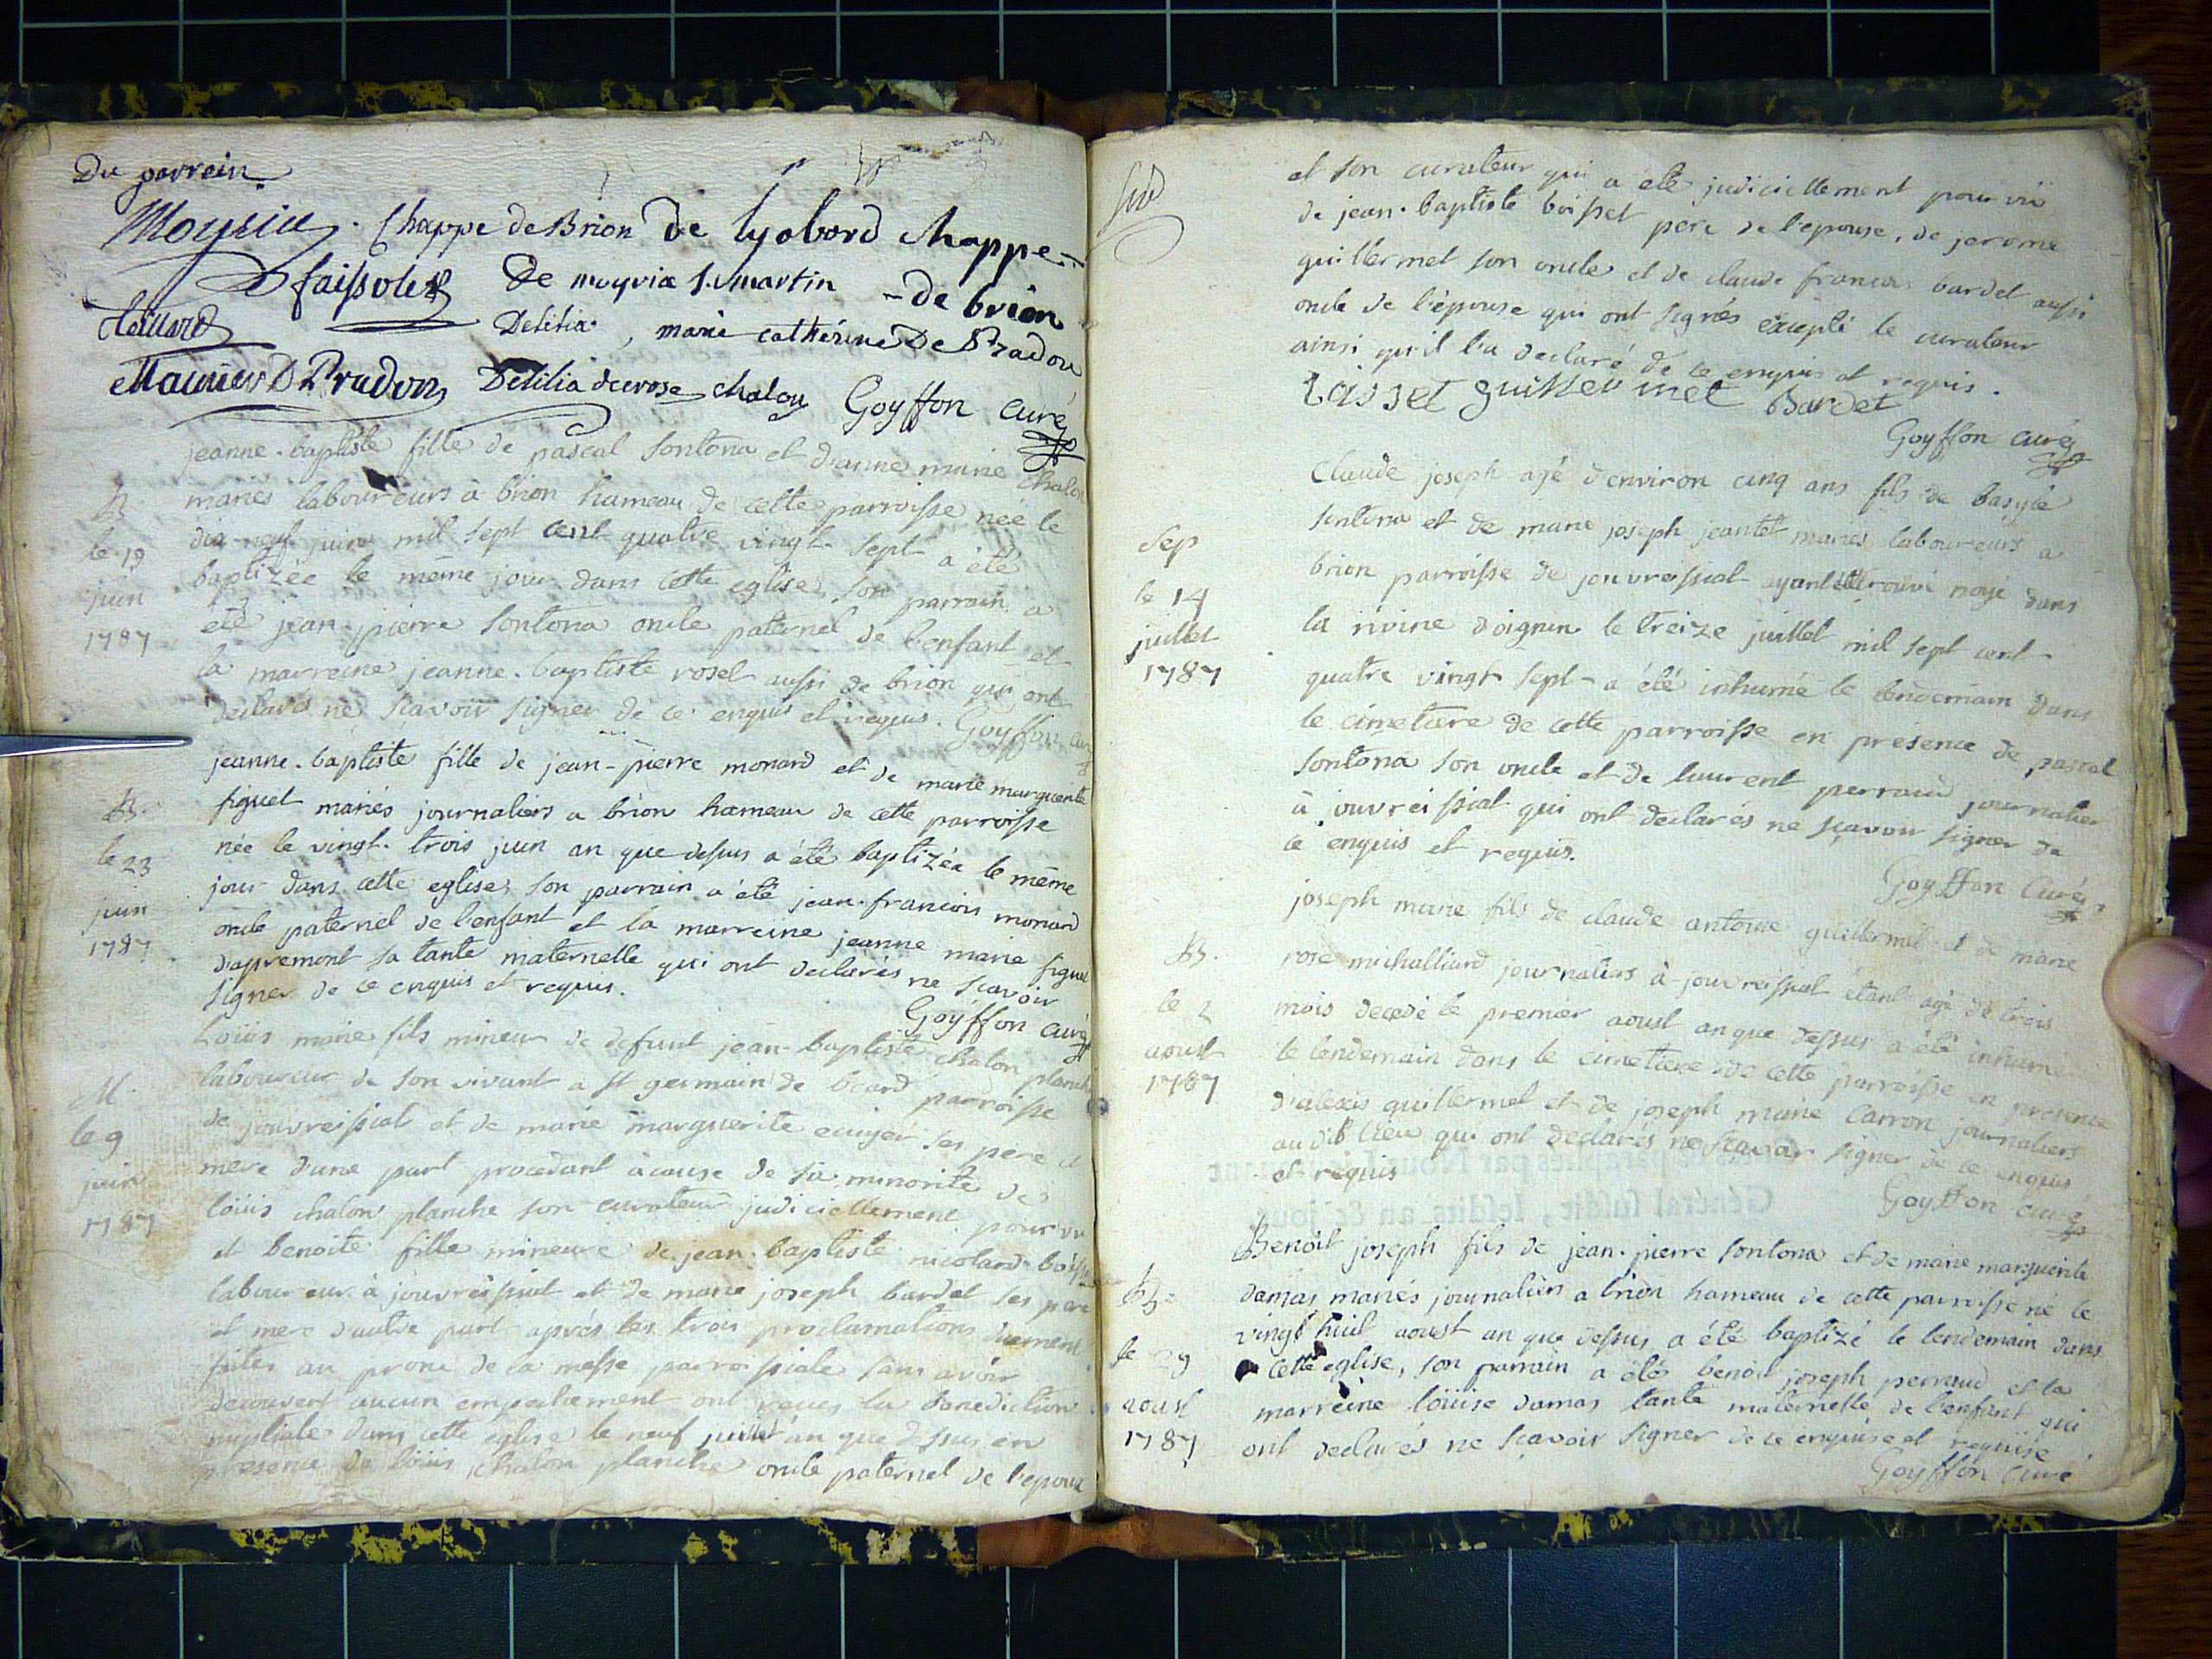 Du parrein
Moyria Chappe de Brion de lyobord chappe-
faissolle De moyria St. martin -de brion
Delilia marie catherine De
Delilia de crose chalon Goyffon curé
jeanne-baptiste fille de pascal sontona et d'anne marie chalon
B. mariés laboureurs à brion hameau de cette parroisse née le
le 19 dix-neuf juin mil sept cent quatre vingt sept a été
juin baptizée le même jour dans cette eglise, son parrain a
1787 eté jean-pierre sontona oncle paternel de l'enfant et
la marreine jeanne-baptiste rosel aussi de brion qui ont
declarés ne scavoir signer de ce enquis et requis. Goyffon curé
jeanne-baptiste fille de jean-pierre monard et de marie marguerite
B. figuet mariés journaliers a brion hameau de cette parroisse
le 23 née le vingt-trois juin an que dessus a été baptizée le même
juin jour dans cette eglise, son parrain a été jean-francois monard
1787 oncle paternel de l'enfant et la marreine jeanne marie figuet
d'apremont sa tante maternelle qui ont declarés ne scavoir
signer de ce enquis et requis.
Goyffon curé
Loüis marie fils mineur de defunt jean-baptiste chalon planche
M. laboureur de son vivant a St germain de beard parroisse
le 9 de jouvreissiat et de marie marguerite ses pere et
juin mere d'une part procedant à cause de sa minorité de
1787 loüis chalon planche son curateur judiciellement pourvu
et benoite fille mineure de jean-baptiste nicolard boisset
laboureur à jouvreissiat et de marie joseph bardet ses pere
et mere d'autre part après les trois proclamations duement
faites au prone de la messe parroissiale sans avoir
decouvert aucun empechement ont reçus la benediction
nuptiale dans cette eglise le neuf juillet an que dessus en
presence de loüis chalon planche oncle paternel de l'epoux
et son curateur qui a eté judiciellement pourvû
de jean-baptiste boisset pere de l'epouse, de jerome
guillermet son oncle et de claude francois bardet aussi
oncle de l'épouse qui ont signés éxcepté le curateur
ainsi qu'il l'a declaré de ce enquis et requis.
boisset guillermet Bardet
Goyffon curé
Claude joseph agé d'environ cinq ans fils de basyle
Sep sontona et de marie joseph jeantet mariés laboureurs a
le 14 brion parroisse de jouvreissiat ayant été trouvé noyé dans
juillet la riviere d'oignin le treize juillet mil sept cent
1787 quatre vingt sept a été inhumé le lendemain dans
le cimetiere de cette parroisse en presence de pascal
sontona son oncle et de laurent perraud journalier
à jouvreissiat qui ont declarés ne scavoir signer de
ce enquis et requis.
Goyffon curé
joseph marie fils de claude antoine guillermet et de marie
rose michalliard journaliers à jouvreissiat étant agé de trois
le 2 mois decedé le premier aoust an que dessus a été inhumé
aoust le lendemain dans le cimetiere de cette parroisse en presence
1787 d'alexis guillermet et de joseph marie carron journaliers
audit lieu qui ont declarés ne scavoir signer de ce enquis
et requis
Goyffon curé
Benoit joseph fils de jean-pierre sontona et de marie marguerite
B. damas mariés journaliers a brion hameau de cette parroisse né le
le 29 vingt huit aoust an que dessus a été baptizé le lendemain dans
aoust cette eglise, son parrain a été benoit joseph perraud et la
1787 marreine loüise damas tante maternelle de l'enfant qui
ont declarés ne scavoir signer de ce enquise et requise
Goyffon curé